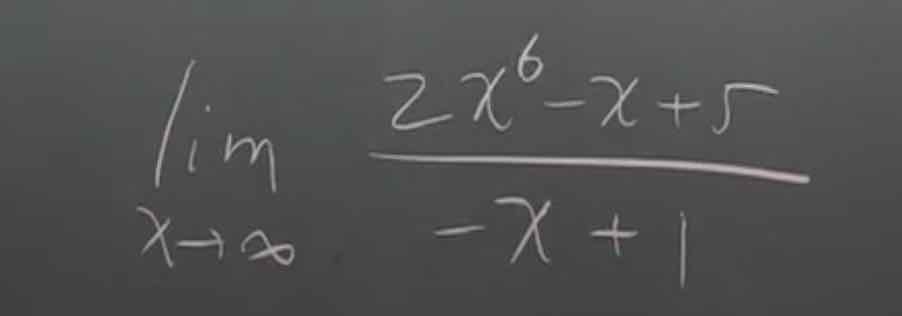 lim 2x⁶-x+5
x→∞ -x+1